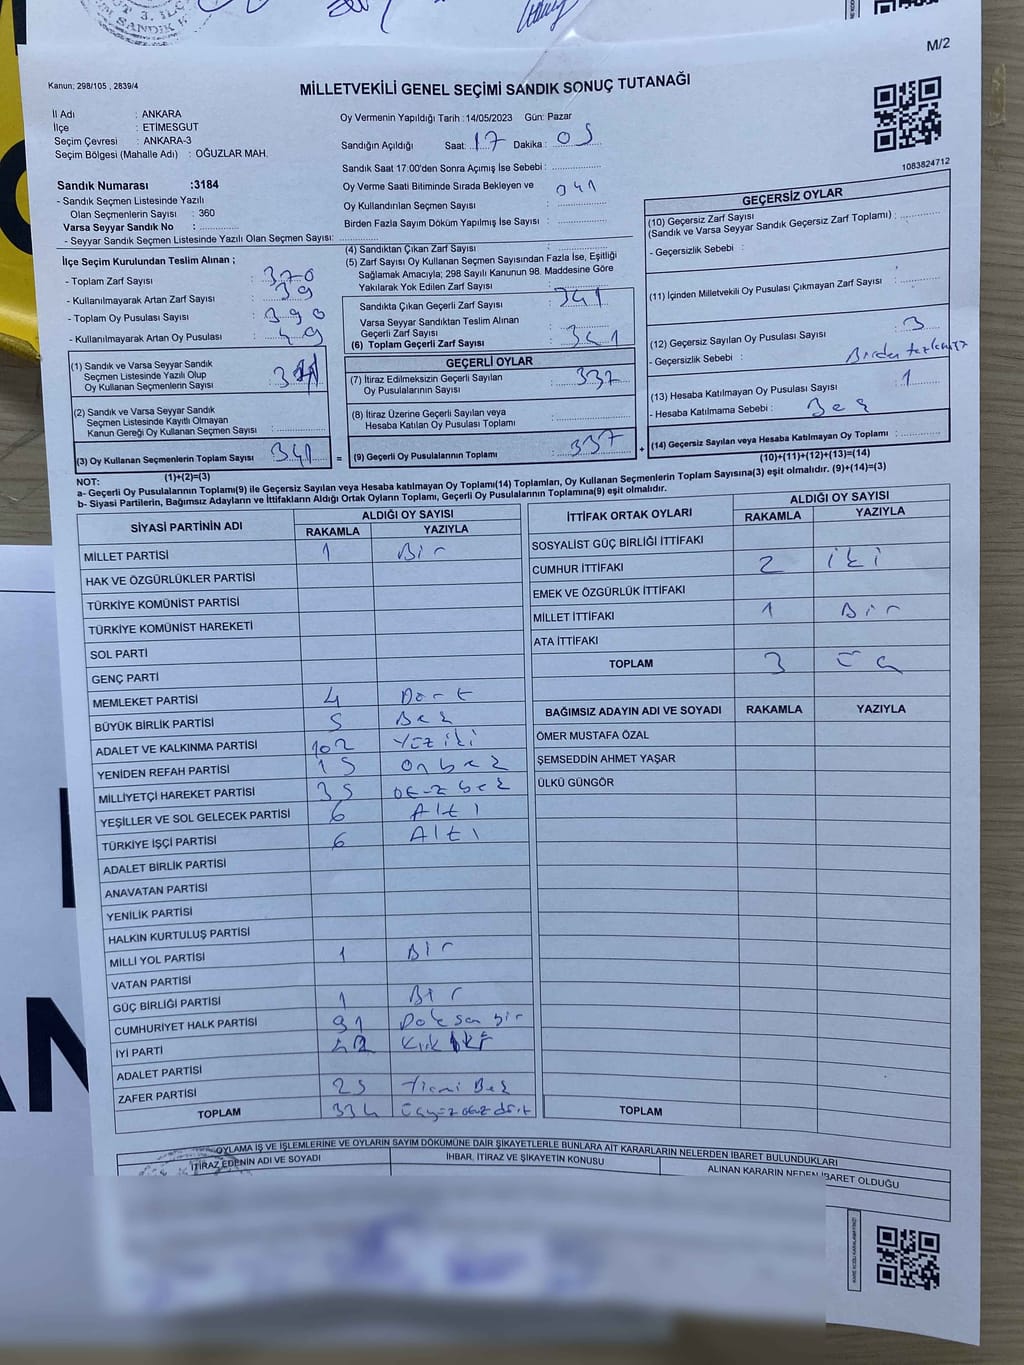 M/2
Kanun; 298/105 , 2839/4
MİLLETVEKİLİ GENEL SEÇİMİ SANDIK SONUÇ TUTANAĞI
İl Adı : ANKARA
İlçe : ETİMESGUT
Seçim Çevresi : ANKARA-3
Seçim Bölgesi (Mahalle Adı) : OĞUZLAR MAH.
Oy Vermenin Yapıldığı Tarih :14/05/2023 Gün: Pazar
Sandığın Açıldığı Saat: 17 Dakika : 05
Sandık Saat 17:00'den Sonra Açımış İse Sebebi :
Oy Verme Saati Bitiminde Sırada Bekleyen ve
Oy Kullandırılan Seçmen Sayısı : 041
Birden Fazla Sayım Döküm Yapılmış İse Sayısı :
1083824712
Sandık Numarası :3184
- Sandık Seçmen Listesinde Yazılı
Olan Seçmenlerin Sayısı : 360
Varsa Seyyar Sandık No :
- Seyyar Sandık Seçmen Listesinde Yazılı Olan Seçmen Sayısı:
İlçe Seçim Kurulundan Teslim Alınan ;
- Toplam Zarf Sayısı : 370
- Kullanılmayarak Artan Zarf Sayısı : 39
- Toplam Oy Pusulası Sayısı : 390
- Kullanılmayarak Artan Oy Pusulası : 49
(1) Sandık ve Varsa Seyyar Sandık
Seçmen Listesinde Yazılı Olup
Oy Kullanan Seçmenlerin Sayısı :
(2) Sandık ve Varsa Seyyar Sandık
Seçmen Listesinde Kayıtlı Olmayan
Kanun Gereği Oy Kullanan Seçmen Sayısı :
(3) Oy Kullanan Seçmenlerin Toplam Sayısı : 341
(1)+(2)=(3)
(4) Sandıktan Çıkan Zarf Sayısı :
(5) Zarf Sayısı Oy Kullanan Seçmen Sayısından Fazla İse, Eşitliği
Sağlamak Amacıyla; 298 Sayılı Kanunun 98. Maddesine Göre
Yakılarak Yok Edilen Zarf Sayısı :
Sandıkta Çıkan Geçerli Zarf Sayısı : 341
Varsa Seyyar Sandıktan Teslim Alınan
Geçerli Zarf Sayısı :
(6) Toplam Geçerli Zarf Sayısı : 341
GEÇERLİ OYLAR
(7) İtiraz Edilmeksizin Geçerli Sayılan
Oy Pusulalarının Sayısı : 337
(8) İtiraz Üzerine Geçerli Sayılan veya
Hesaba Katılan Oy Pusulası Toplamı :
= (9) Geçerli Oy Pusulalarının Toplamı : 337 +
GEÇERSİZ OYLAR
(10) Geçersiz Zarf Sayısı
(Sandık ve Varsa Sandık Geçersiz Zarf Toplamı) :
- Geçersizlik Sebebi :
(11) İçinden Milletvekili Oy Pusulası Çıkmayan Zarf Sayısı :
(12) Geçersiz Sayılan Oy Pusulası Sayısı : 3
- Geçersizlik Sebebi :
(13) Hesaba Katılmayan Oy Pusulası Sayısı : 1
- Hesaba Katılmama Sebebi :
(14) Geçersiz Sayılan veya Hesaba Katılmayan Oy Toplamı :
(10)+(11)+(12)+(13)=(14)
NOT:
a- Geçerli Oy Pusulalarının Toplamı(9) ile Geçersiz Sayılan veya Hesaba Katılmayan oy Toplamı(14) Toplamları, Oy Kullanan Seçmenlerin Toplam Sayısına(3) eşit olmalıdır. (9)+(14)=(3)
b- Siyasi Partilerin, Bağımsız Adayların ve İttifakların Aldığı Ortak Oyların Toplamı, Geçerli Oy Pusulalarının Toplamına(9) eşit olmalıdır.
SİYASİ PARTİNİN ADI ALDIĞI OY SAYISI
RAKAMLA YAZIYLA
MİLLET PARTİSİ 1 Bir
HAK VE ÖZGÜRLÜKLER PARTİSİ
TÜRKİYE KOMÜNİST PARTİSİ
TÜRKİYE KOMÜNİST HAREKETİ
SOL PARTİ
GENÇ PARTİ
MEMLEKET PARTİSİ 4 Dört
BÜYÜK BİRLİK PARTİSİ 5 Beş
ADALET VE KALKINMA PARTİSİ 102 Yüz iki
YENİDEN REFAH PARTİSİ 15 Onbeş
MİLLİYETÇİ HAREKET PARTİSİ 35 otuz beş
YEŞİLLER VE SOL GELECEK PARTİSİ 6 Altı
TÜRKİYE İŞÇİ PARTİSİ 6 Altı
ADALET BİRLİK PARTİSİ
ANAVATAN PARTİSİ
YENİLİK PARTİSİ
HALKIN KURTULUŞ PARTİSİ
MİLLİ YOL PARTİSİ 1 Bir
VATAN PARTİSİ
GÜÇ BİRLİĞİ PARTİSİ 1 Bir
CUMHURİYET HALK PARTİSİ 91 Doksan bir
İYİ PARTİ 42 Kırk iki
ADALET PARTİSİ
ZAFER PARTİSİ 25 Yirmi Beş
TOPLAM 334 Üçyüz otuz dört
İTTİFAK ORTAK OYLARI ALDIĞI OY SAYISI
RAKAMLA YAZIYLA
SOSYALİST GÜÇ BİRLİĞİ İTTİFAKI
CUMHUR İTTİFAKI 2 iki
EMEK VE ÖZGÜRLÜK İTTİFAKI
MİLLET İTTİFAKI 1 Bir
ATA İTTİFAKI
TOPLAM 3 Üç
BAĞIMSIZ ADAYIN ADI VE SOYADI RAKAMLA YAZIYLA
ÖMER MUSTAFA ÖZAL
ŞEMSEDDİN AHMET YAŞAR
ÜLKÜ GÜNGÖR
TOPLAM
OYLAMA İŞ VE İŞLEMLERİNE VE OYLARIN SAYIM DÖKÜMÜNE DAİR ŞİKAYETLERLE BUNLARA AİT KARARLARIN NELERDEN İBARET BULUNDUKLARI
İTİRAZ EDENİN ADI VE SOYADI İHBAR, İTİRAZ VE ŞİKAYETİN KONUSU ALINAN KARARIN NEDEN İBARET OLDUĞU